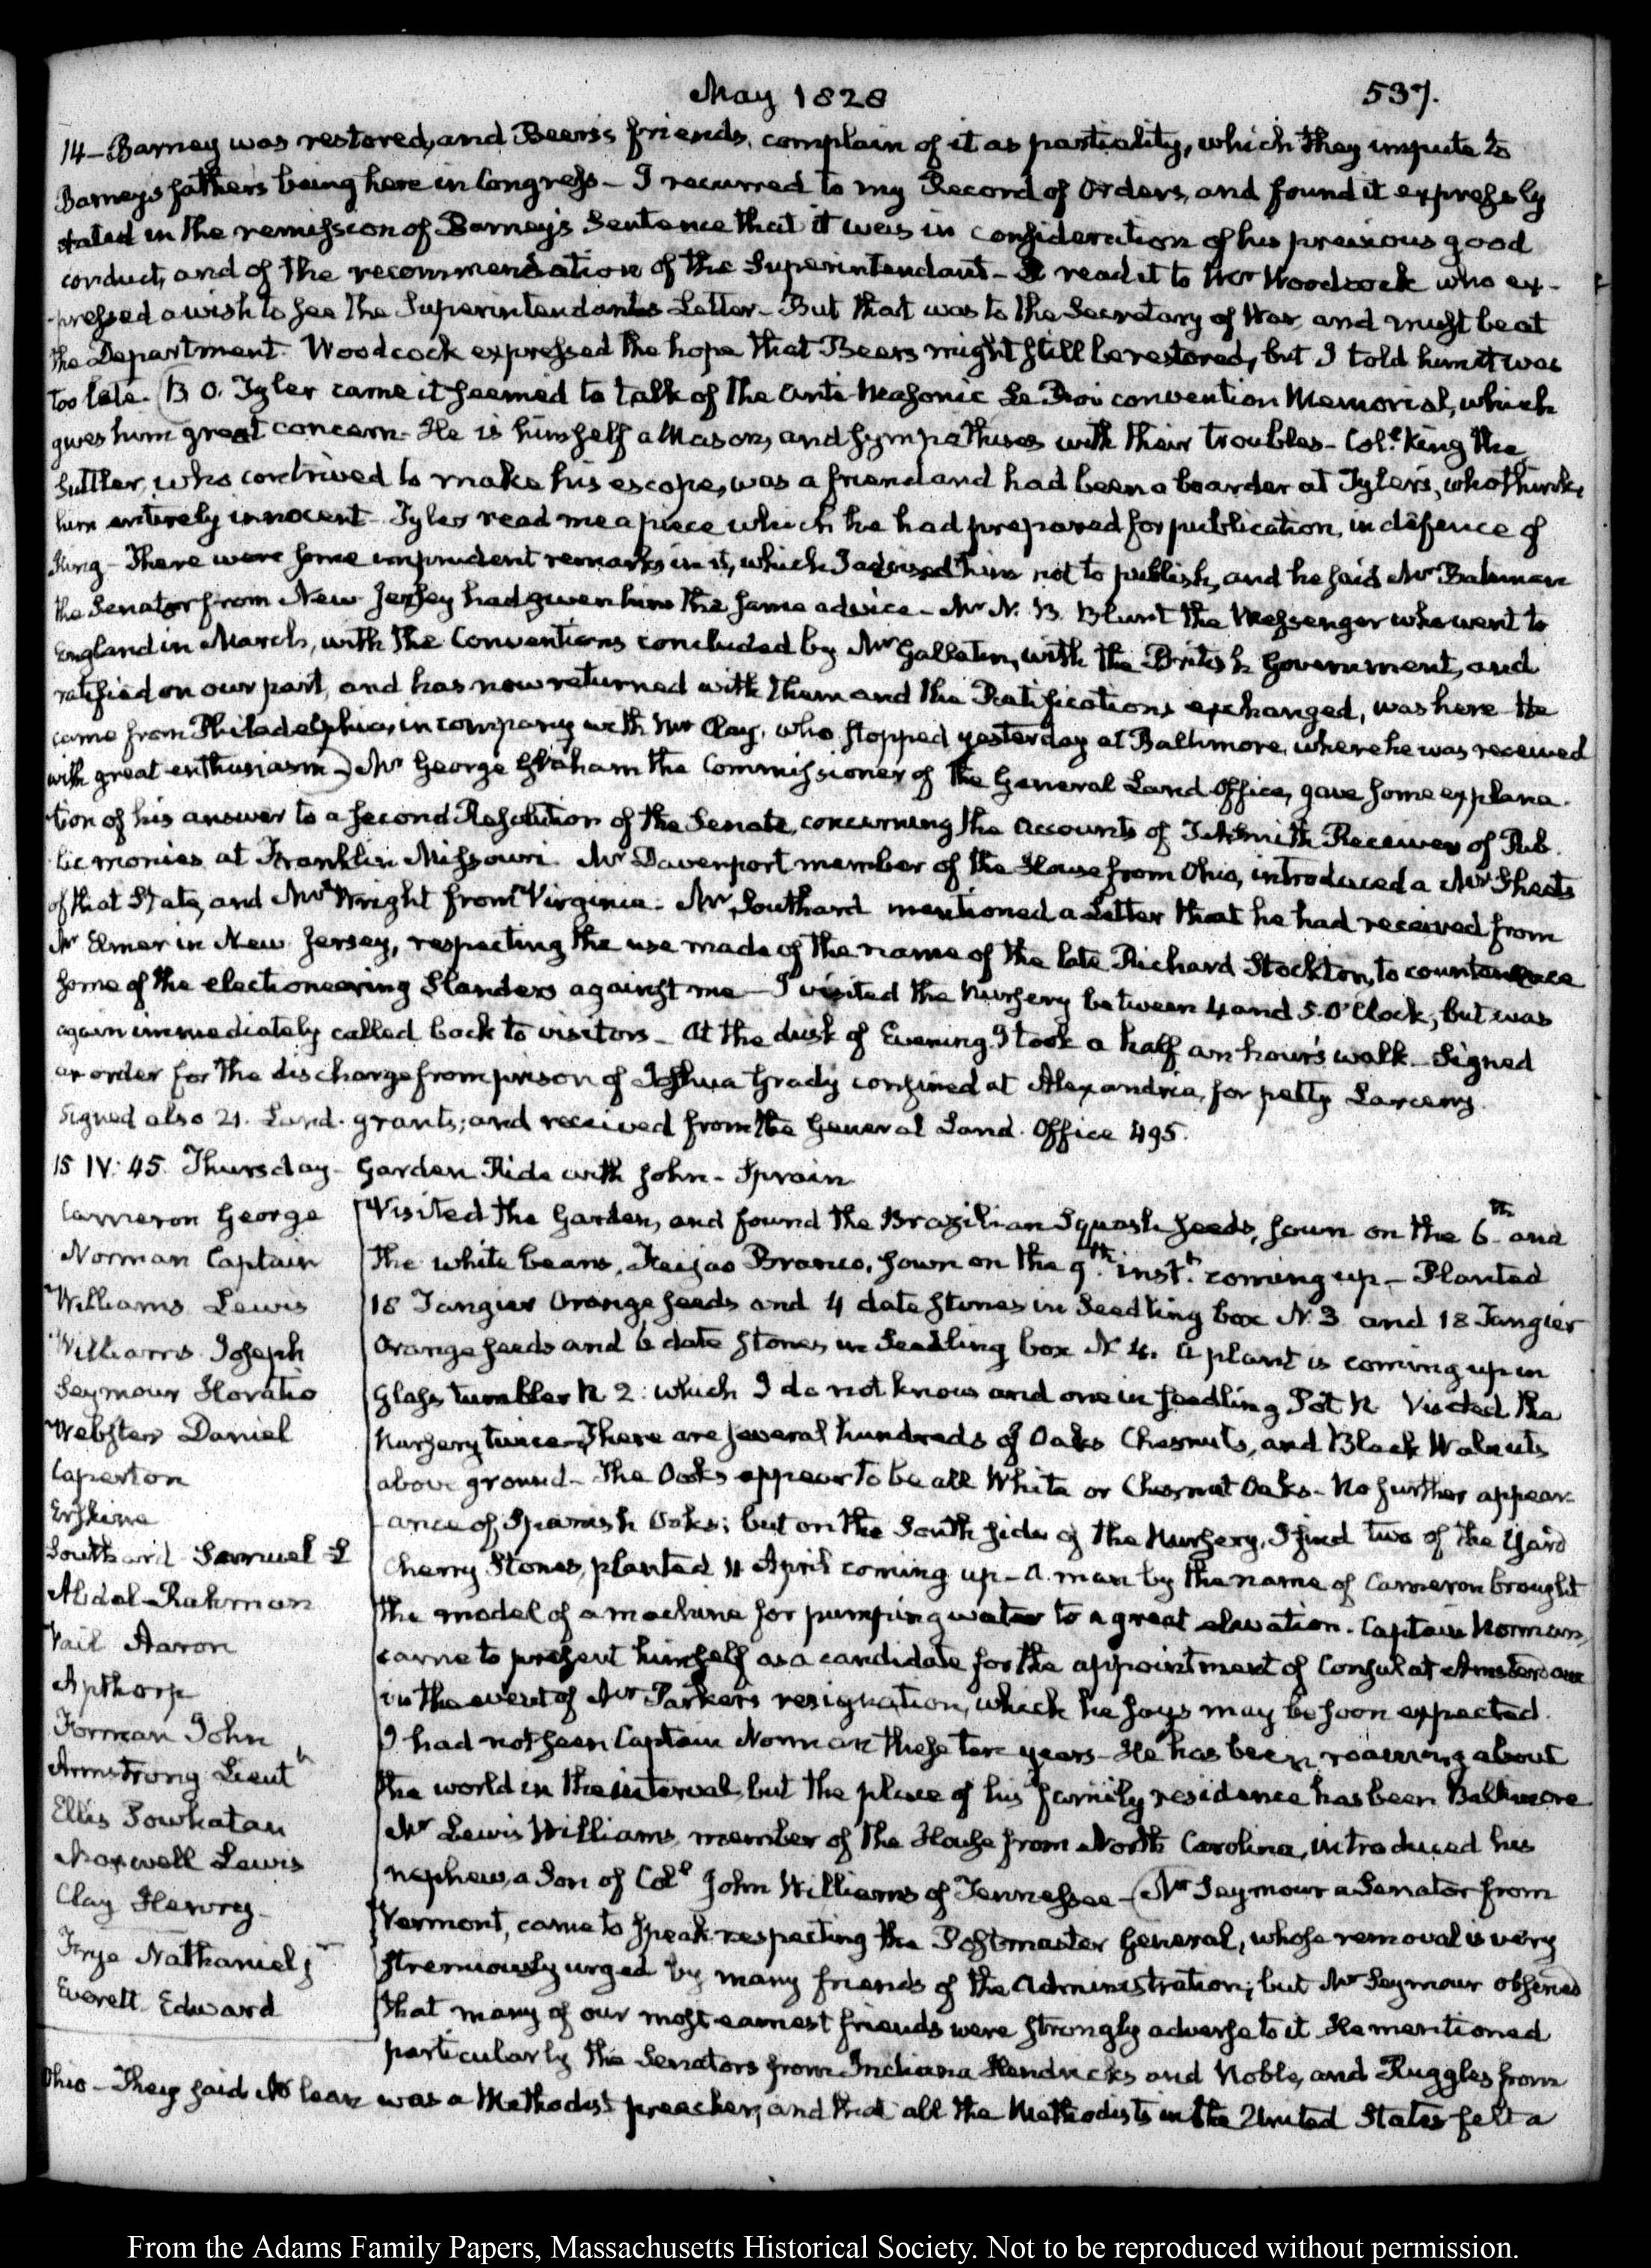 May 1828
537.
14 – Barney was restored, and Beers's friends, complain of it as partiality, which they impute to
Barney's father's being here in Congress – I recurred to my Record of Orders, and found it expressly
stated in the remission of Barney's Sentence that it was in consideration of his previous good
conduct, and of the recommendation of the Superintendant – I read it to Mr Woodcock who ex-
-pressed a wish to see the Superintendants Letter – But that was to the Secretary of War, and must be at
the Department. Woodcock expressed the hope that Beers might still be restored, but I told him it was
too late. B. O. Tyler came it seemed to talk of the Anti-Masonic Le Roi convention Memorial, which
gives him great concern. He is himself a Mason, and sympathises with their troubles – Coll. King the
Suttler, who contrived to make his escape, was a friend and had been a boarder at Tyler's, who thinks
him entirely innocent – Tyler read me a piece which he had prepared for publication, in defence of
King – There were some imprudent remarks in it, which I advised him not to publish, and he said Mr Bateman
the Senator from New Jersey had given him the same advice – Mr N. B. Blunt the Messenger who went to
England in March, with the Conventions concluded by Mr Gallatin, with the British Government, and
ratified on our part, and has now returned with them and the Ratifications exchanged, was here – He
came from Philadelphia, in company with Mr Clay, who stopped yesterday at Baltimore, where he was received
with great enthusiasm – Mr George Graham the Commissioner of the General Land Office, gave some explana-
tion of his answer to a second Resolution of the Senate, concerning the accounts of T. A. Smith Receiver of Pub-
lic monies at Franklin Missouri. Mr Davenport member of the House from Ohio, introduced a Mr Sheets
of that State, and Mr Wright from Virginia. Mr Southard mentioned a Letter that he had received from
Mr Elmer in New Jersey, respecting the use made of the name of the late Richard Stockton, to countenance
some of the electioneering Slanders against me – I visited the Nursery between 4 and 5. O'Clock, but was
again immediately called back to visitors – At the dusk of Evening I took a half an hour's walk – Signed
an order for the discharge from prison of Joshua Grady confined at Alexandria, for petty Larceny.
Signed also 21. Land. grants; and received from the General Land. Office 495.
15 IV: 45. Thursday – Garden Ride with John – Sprain
Cameron George
Norman Captain
Williams Lewis
Williams Joseph
Seymour Horatio
Webster Daniel
Caperton
Erskine
Southard Samuel L
Abdal-Rahman
Vail Aaron
Apthorp
Forman John
Armstrong Lieutt
Ellis Powhatan
Maxwell Lewis
Clay Henry –
Frye Nathaniel jr
Everett Edward
Visited the Garden, and found the Brazilian Squash seeds, sown on the 6th and
the white beans, Feijao Branco, sown on the 9th instt. coming up – Planted
18 Tangier Orange seeds and 4 date stones in Seedling box N. 3 and 18 Tangier
Orange seeds and 6 date stones in Seedling box N. 4. A plant is coming up in
Glass tumbler N. 2: which I do not know and one in seedling Pot N Visited the
Nursery twice – There are several hundreds of Oaks Chesnuts, and Black Walnuts
above ground – The Oaks appear to be all White or Chesnut Oaks – No further appear-
-ance of Spanish Oaks; but on the South side of the Nursery, I find two of the Yard
Cherry Stones, planted 11 April coming up – A man by the name of Cameron brought
the model of a machine for pumping water to a great elevation. Captain Norman,
came to present himself as a candidate for the appointment of Consul at Amsterdam
in the event of Mr Parker's resignation, which he says may be soon expected.
I had not seen Captain Norman these ten years – He has been roaming about
the world in the interval, but the place of his family residence has been Baltimore.
Mr Lewis Williams, member of the House from North Carolina, introduced his
nephew, a Son of Coll John Williams of Tennessee – Mr Seymour a Senator from
Vermont, came to speak respecting the Postmaster General, whose removal is very
strenuously urged by many friends of the Administration; but Mr Seymour observed
that many of our most earnest friends were strongly adverse to it. He mentioned
particularly the Senators from Indiana Hendricks and Noble, and Ruggles from
Ohio – They said McLean was a Methodist preacher, and that all the Methodists in the United States felt a
From the Adams Family Papers, Massachusetts Historical Society. Not to be reproduced without permission.